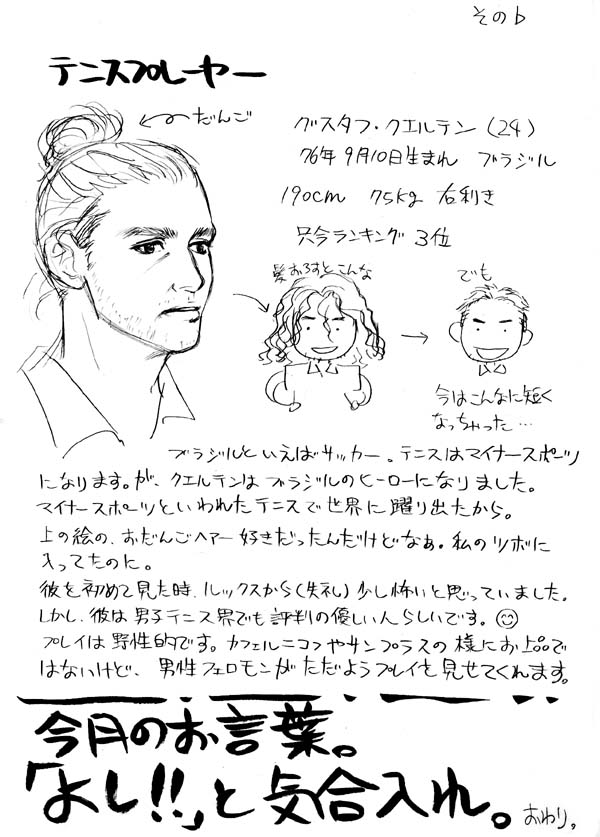 その6
テニスプレーヤー
だんご
グスタフ・クエルテン（24）
76年9月10日生まれ ブラジル
190cm 75kg 右利き
只今ランキング3位
髪おろすとこんな
でも
今はこんなに短く
なっちゃった…
ブラジルといえばサッカー。テニスはマイナースポーツ
になります。が、クエルテンはブラジルのヒーローになりました。
マイナースポーツといわれたテニスで世界に躍り出たから。
上の絵の、おだんごヘアー好きだったんだけどなぁ。私のツボに
入ってたのに。
彼を初めて見た時、ルックスから（失礼）少し怖いと思っていました。
しかし、彼は男子テニス界でも評判の優しい人らしいです。
プレイは野性的です。カフェルニコフやサンプラスの様にお上品で
はないけど、男性フェロモンがただようプレイを見せてくれます。
今月のお言葉。
「よし!!」と気合入れ。
おわり。